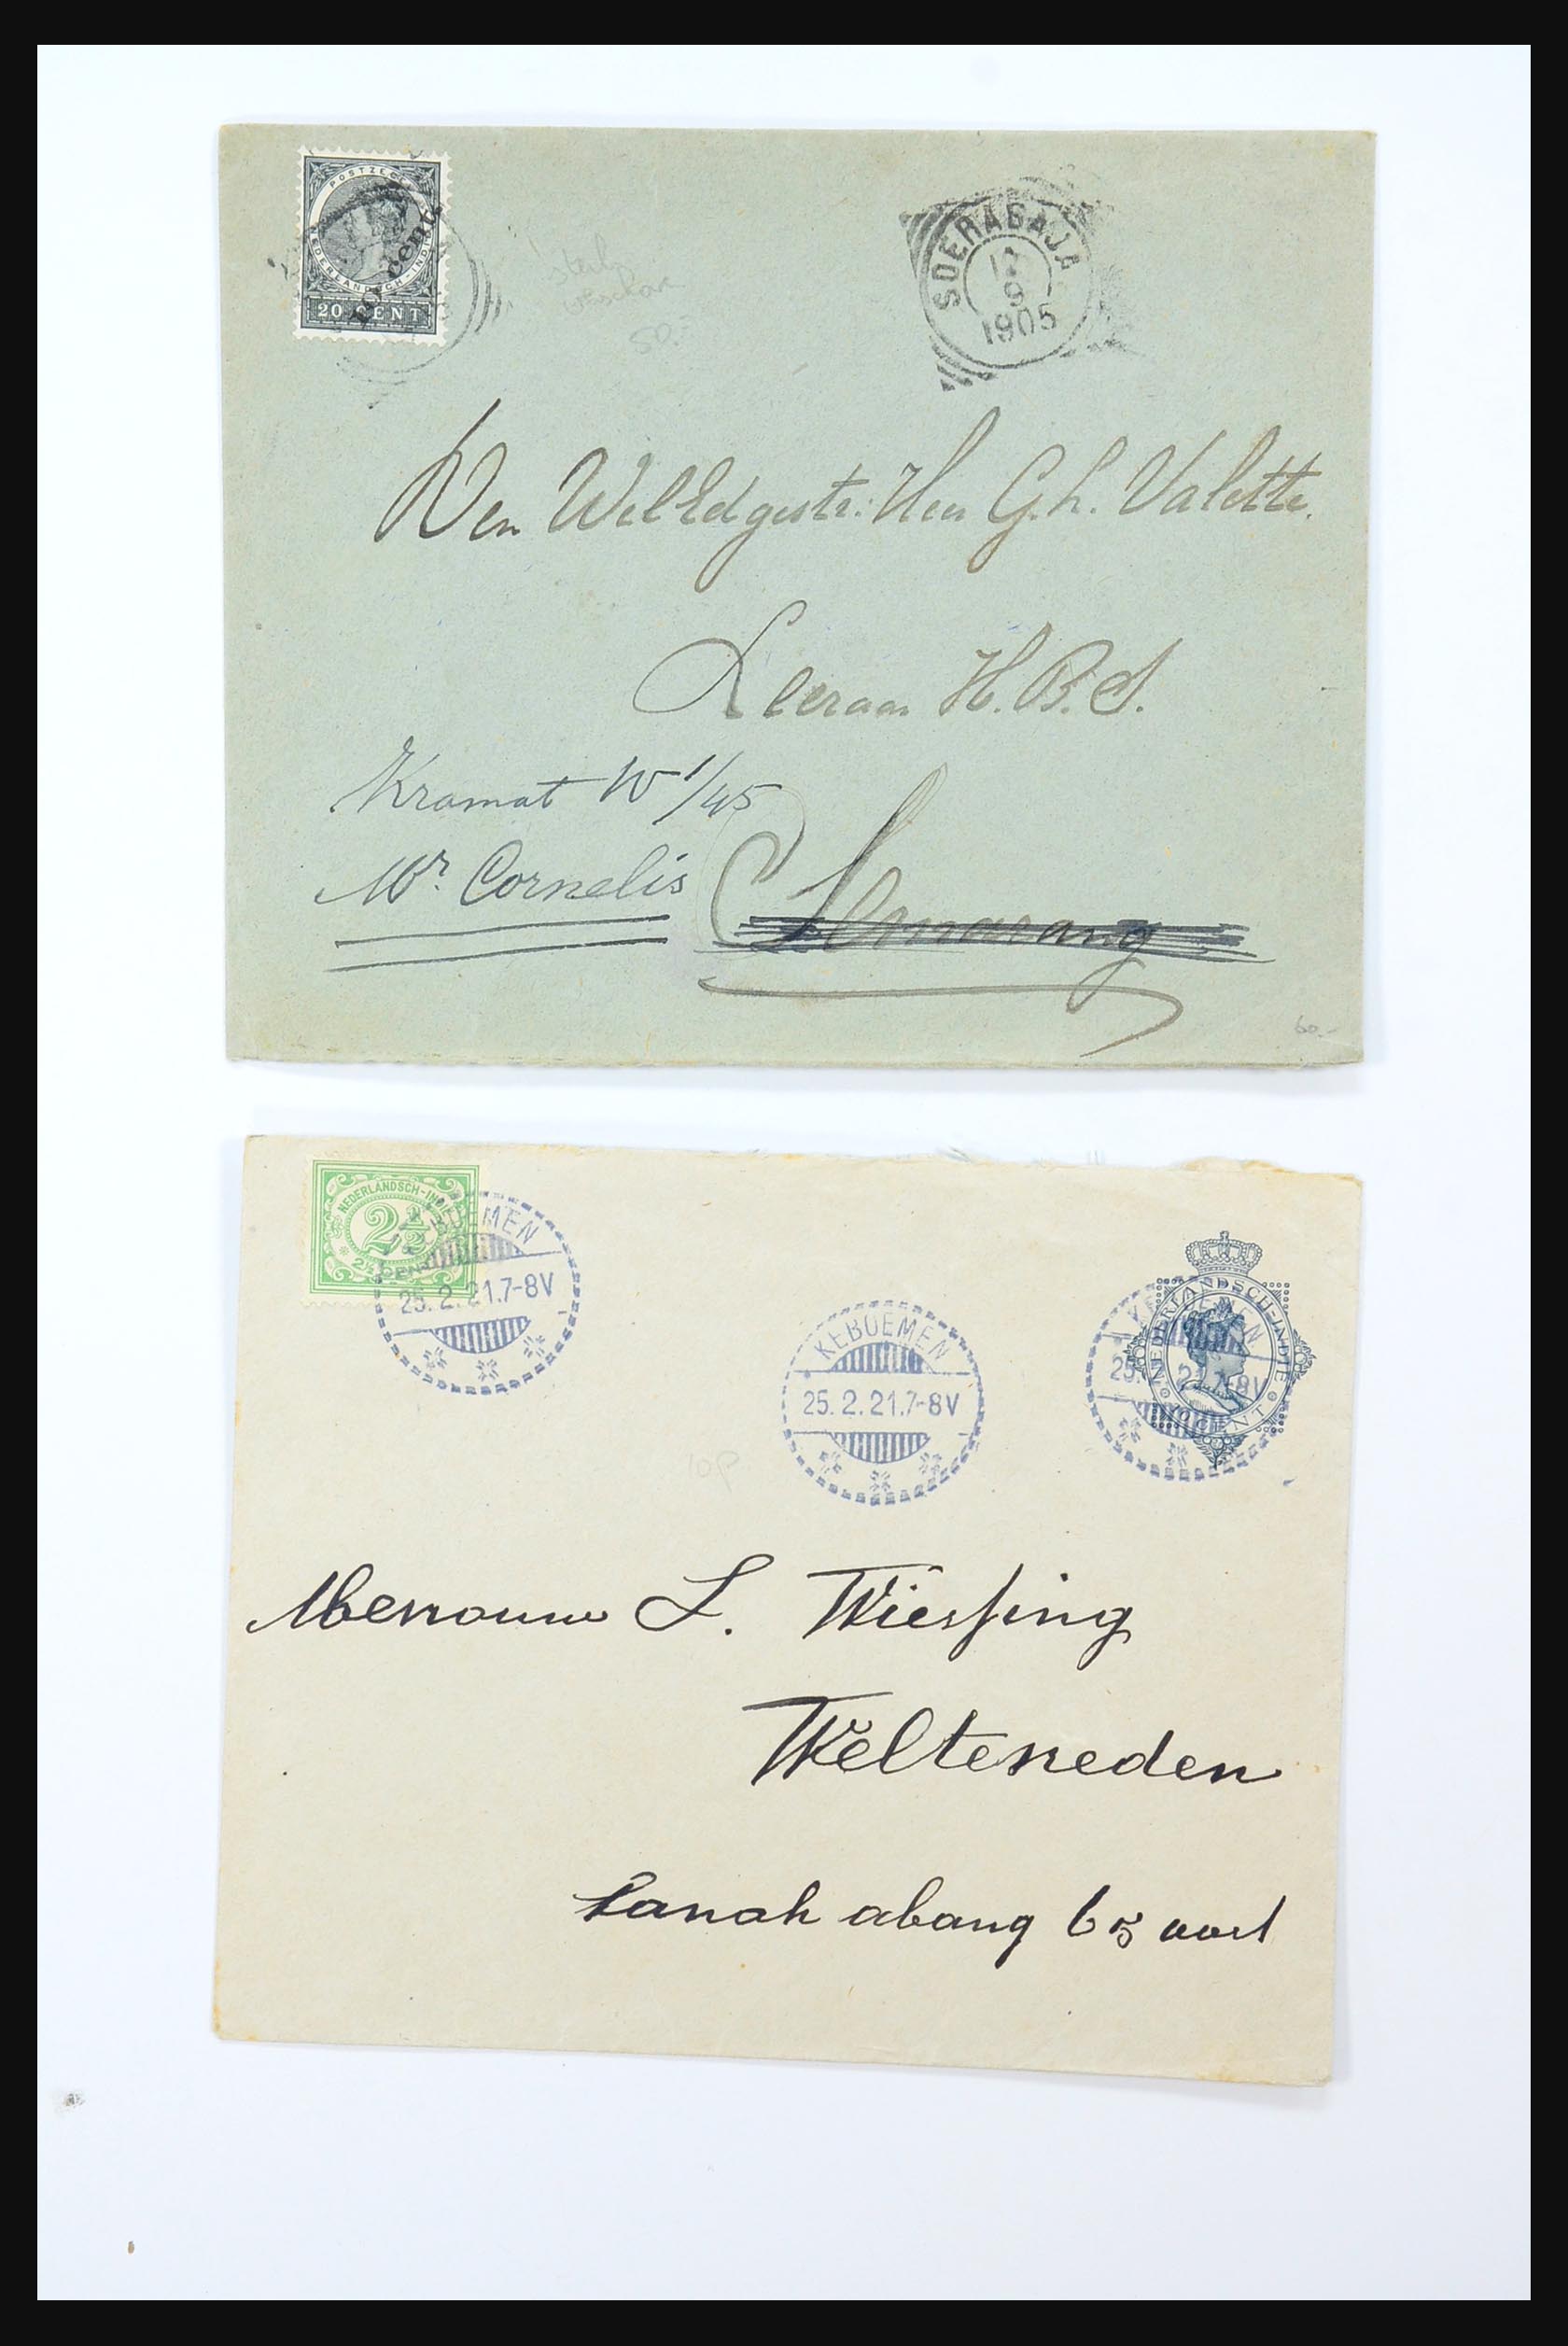 POSTZEGEL
NEDERLANDSCH-INDIË
10 cent.
20 CENT
SOERABAJA
9
1905
50.-
Den WelEdgestr: Heer G. L. Valette.
Leeraar H.B.S.
Kramat W 1/45
Mr. Cornelis
Semarang
60.-
NEDERLANDSCH-INDIË
2½
KEBOEMEN
25.2.21.7-8V
KEBOEMEN
25.2.21.7-8V
NEDERLANDSCH-INDIE
CENT
KEBOEMEN
25.2.21.7-8V
Mevrouw L. Wiessing
Weltevreden
tanah abang 65 oost